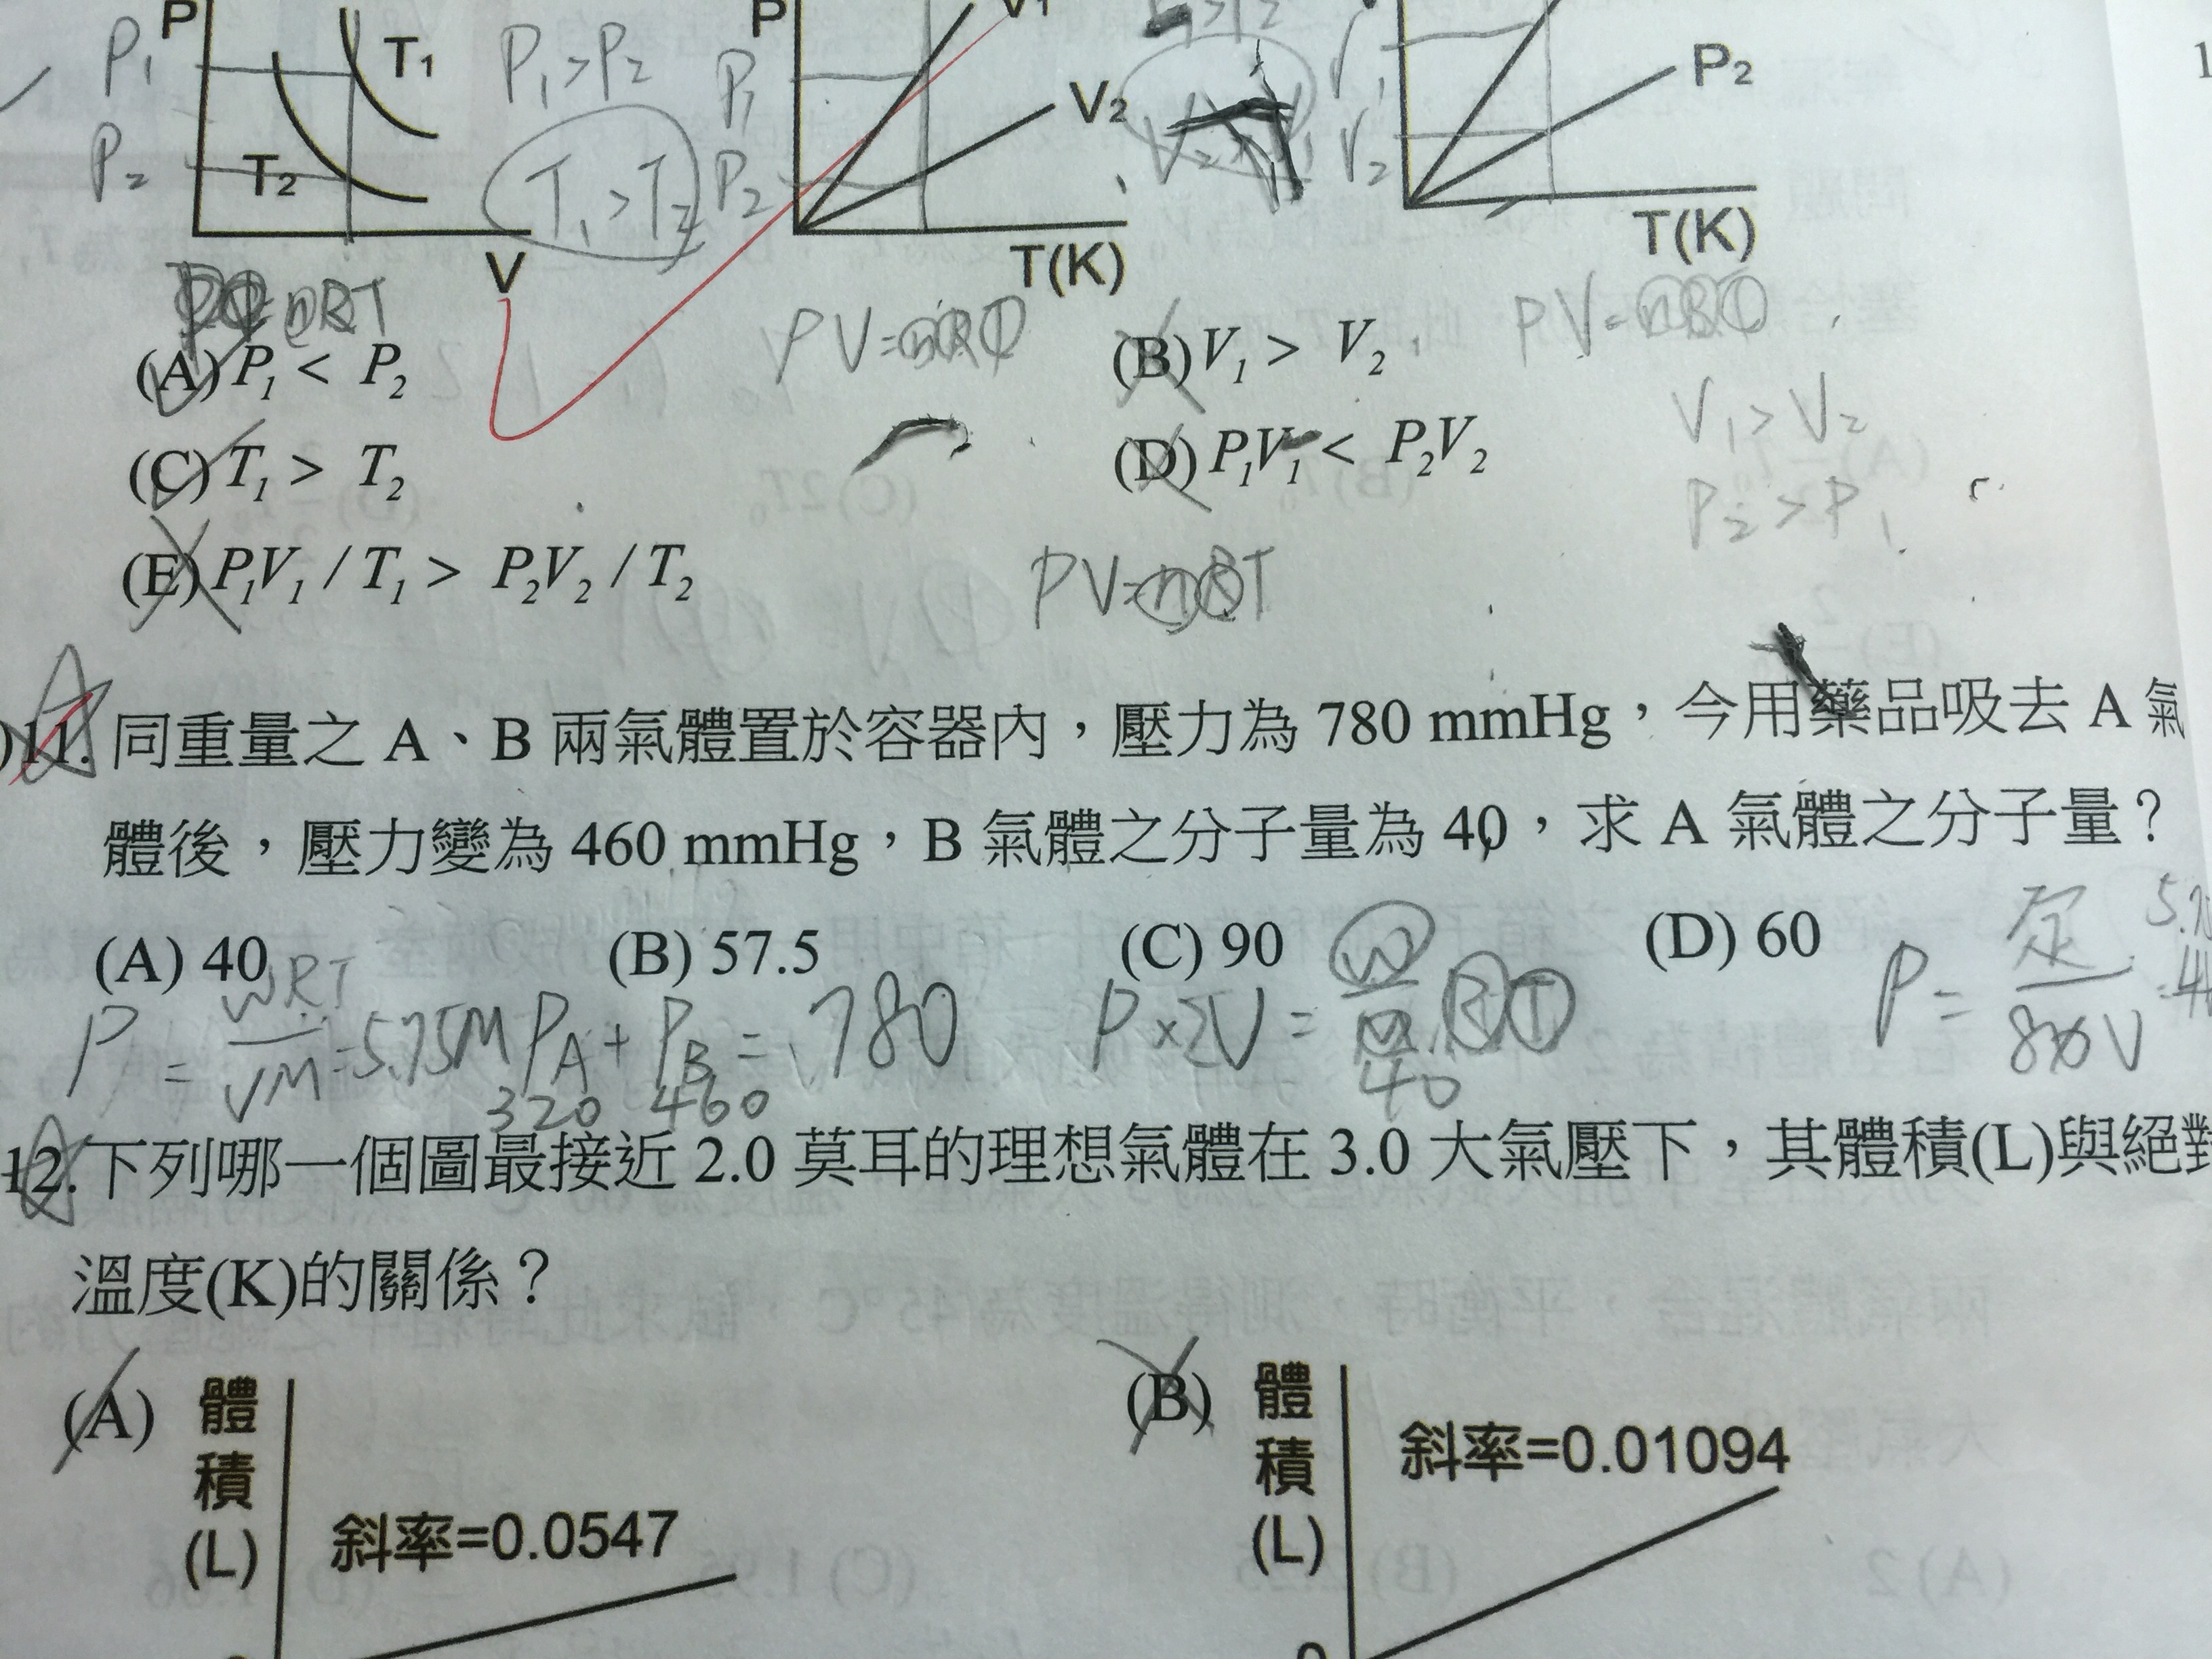 P P₁ P₂ T₁ T₂ V
P₁>P₂
T₁>T₂
P P₁ P₂ V₁ V₂ T(K)
P₂ T(K)
nRT
PV=nRT
PV=nRT
(A) P₁ < P₂ (B) V₁ > V₂
V₁>V₂
(C) T₁ > T₂ (D) P₁V₁ < P₂V₂
P₂>P₁
(E) P₁V₁ / T₁ > P₂V₂ / T₂
PV=nRT
)11. 同重量之 A、B 兩氣體置於容器內,壓力為 780 mmHg,今用藥品吸去 A 氣
體後,壓力變為 460 mmHg,B 氣體之分子量為 40,求 A 氣體之分子量?
(A) 40 (B) 57.5 (C) 90 (D) 60
P = WRT/VM = 5.75M
P_A + P_B = 780
320 460
12. 下列哪一個圖最接近 2.0 莫耳的理想氣體在 3.0 大氣壓下,其體積(L)與絕對
溫度(K)的關係?
(A) 體積(L) 斜率=0.0547
(B) 體積(L) 斜率=0.01094
0